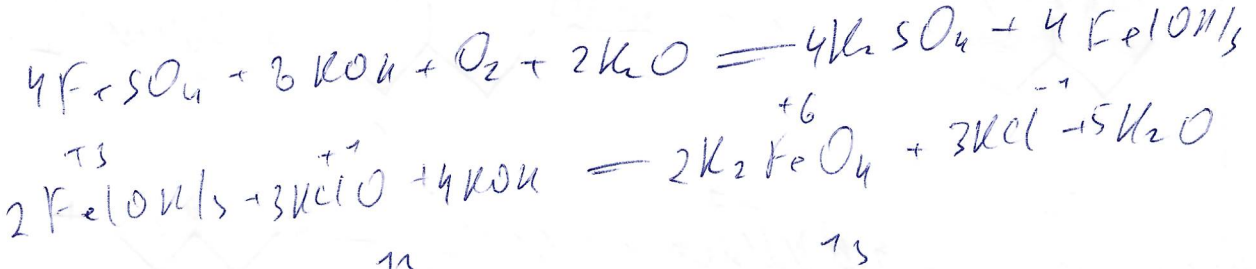 4FeSO₄ + 8KOH + O₂ + 2H₂O = 4K₂SO₄ + 4Fe(OH)₃
+3 +1 +6 -1
2Fe(OH)₃ + 3KClO + 4KOH = 2K₂FeO₄ + 3KCl + 5H₂O
13